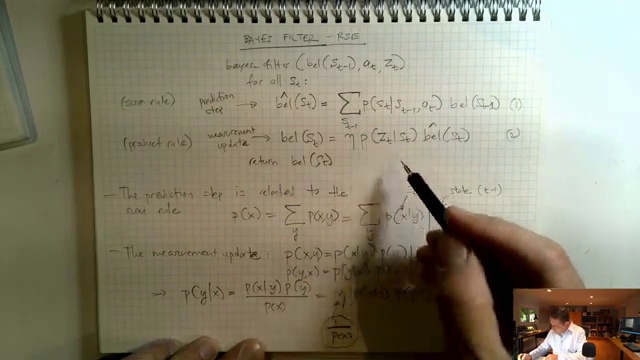 BAYES FILTER - RSE
bayes filter (bel(S_{t-1}), a_t, Z_t)
for all S_t:
(sum rule) prediction step → bel^(S_t) = ∑_{S_{t-1}} p(S_t|S_{t-1}, a_t) bel(S_{t-1}) (1)
(product rule) measurement update → bel(S_t) = η p(Z_t|S_t) bel^(S_t) (2)
return bel(S_t)
- The prediction step is related to the state (t-1)
sum rule p(x) = ∑_y p(x,y) = ∑_y p(x|y)
- The measurement update: p(x,y) = p(x|y) p(
p(y,x) = p(y|x)
⇒ p(y|x) = p(x|y) p(y) / p(x) =
1 / p(x)